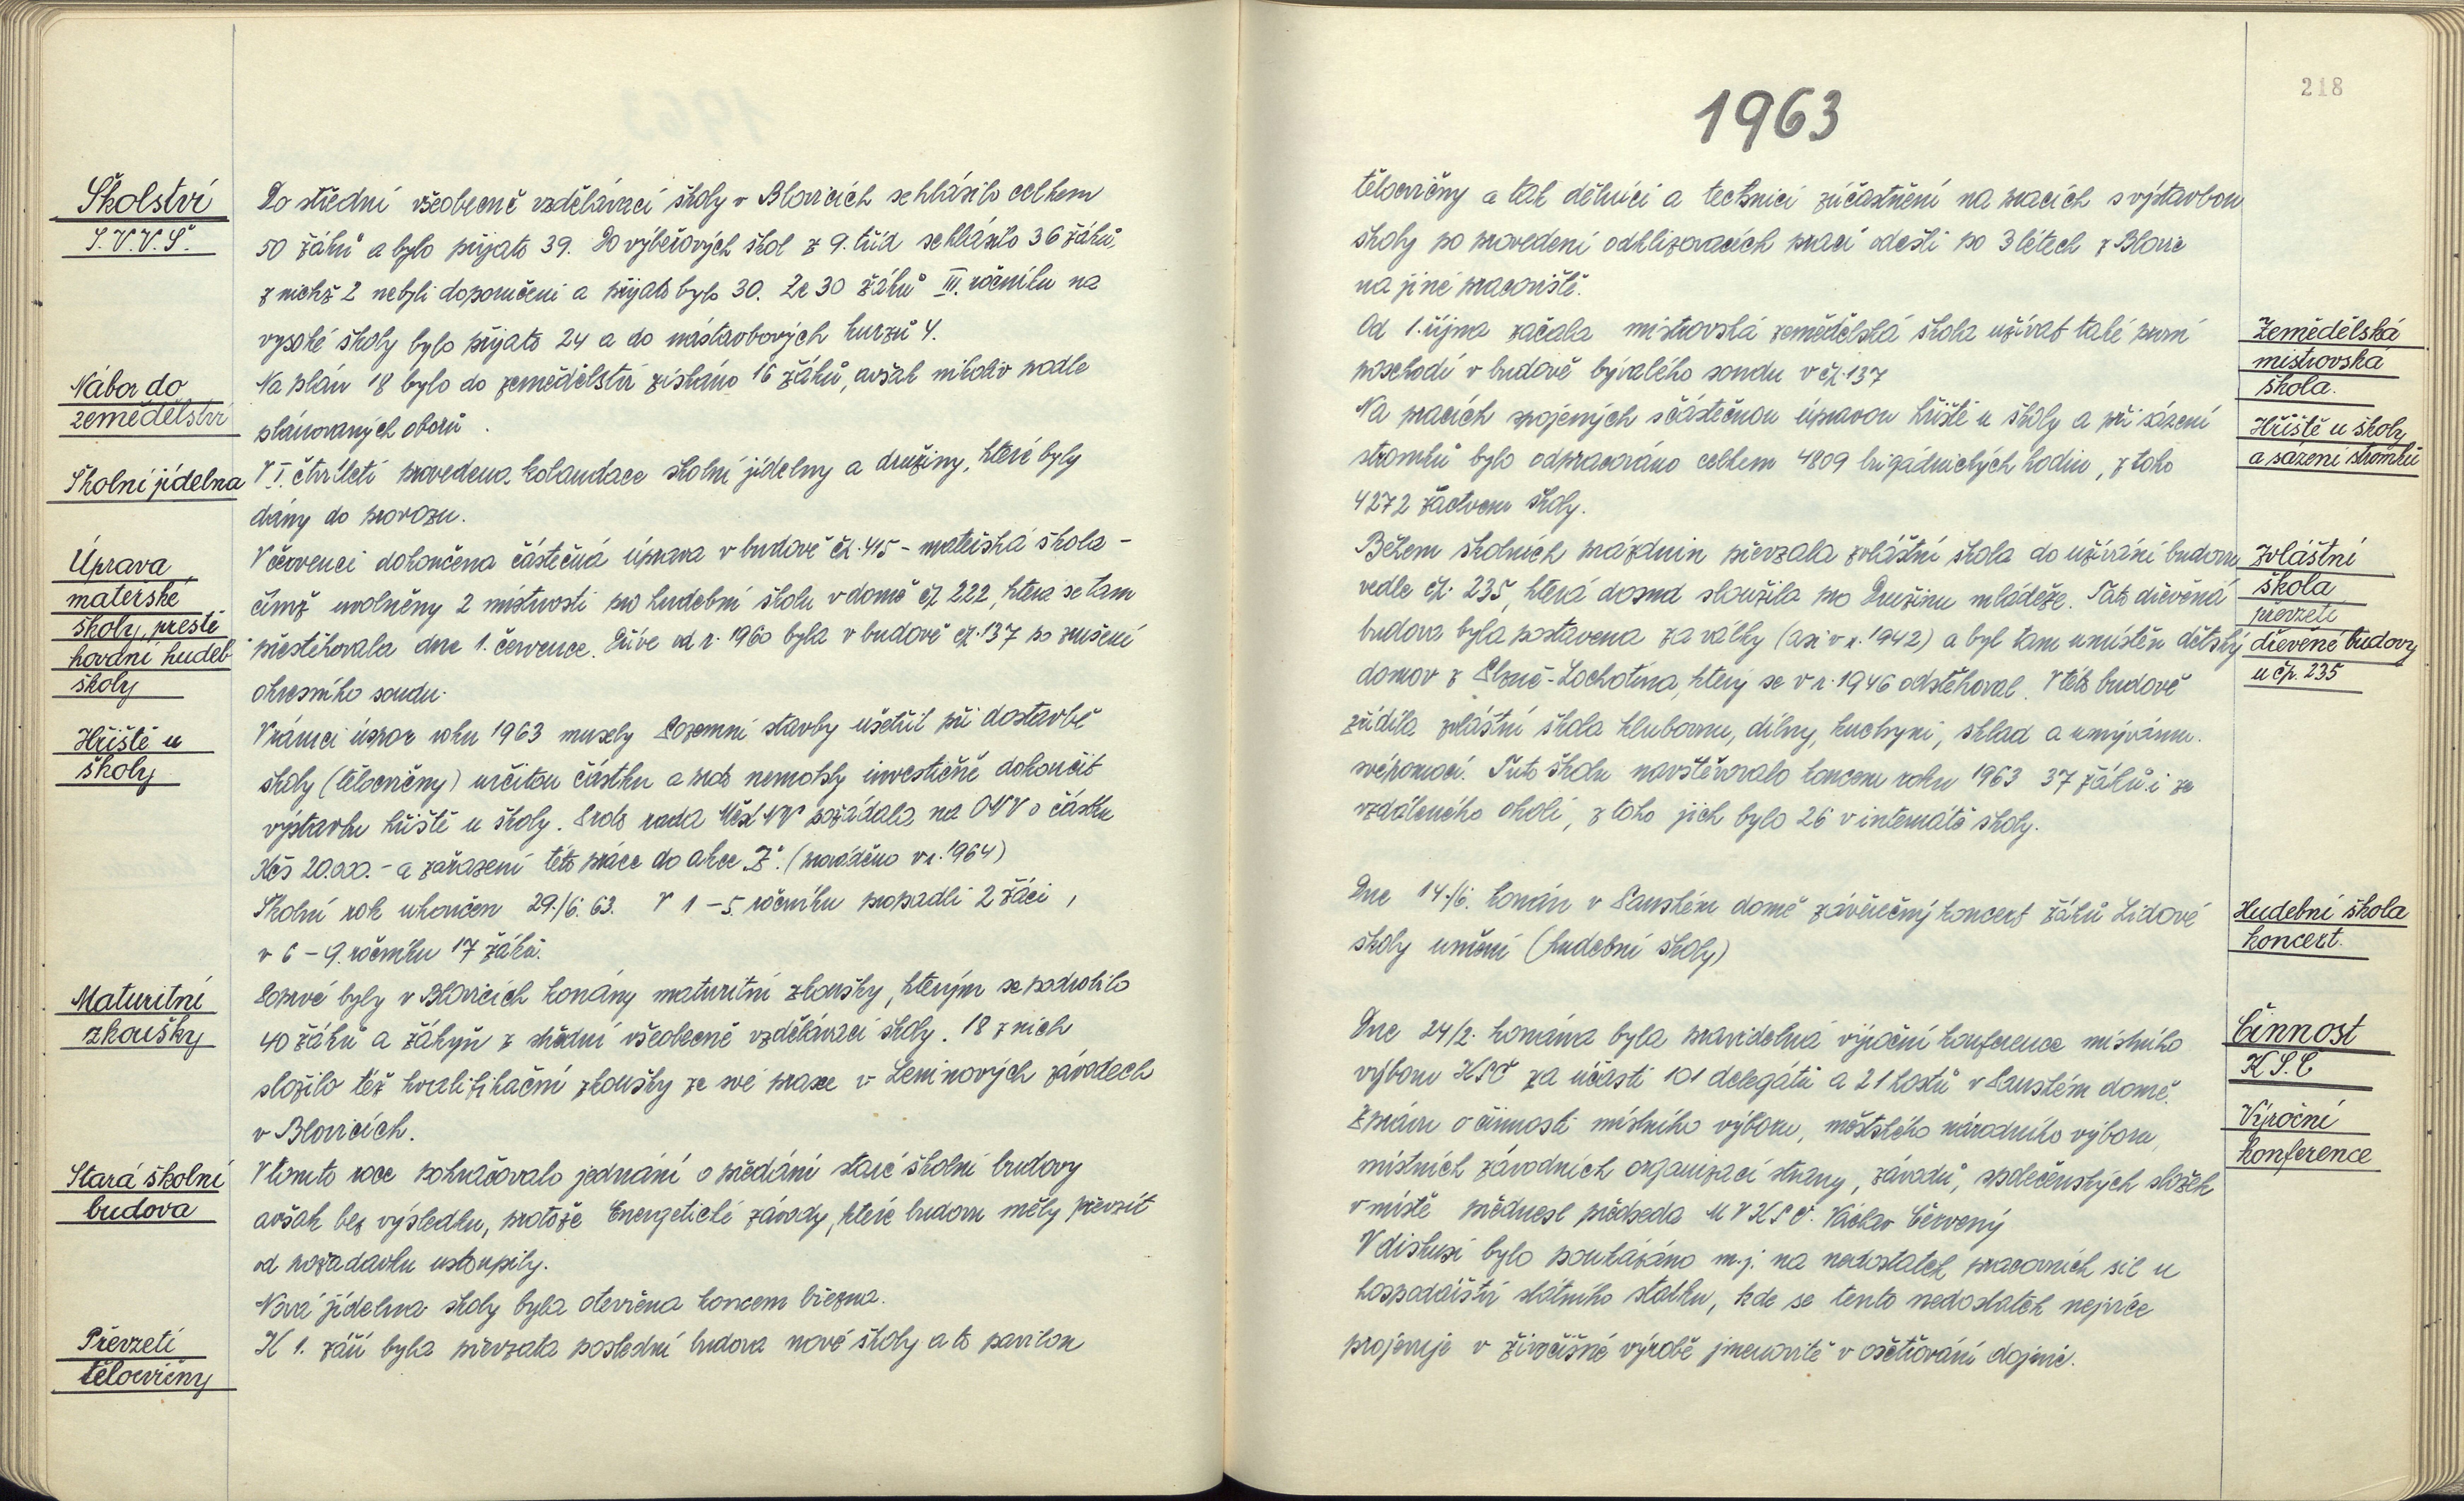 Školství
S.V.V.Š.
Do střední všeobecně vzdělávací školy v Blovicích se hlásilo celkem
50 žáků a bylo přijato 39. Do výběrových škol z 9. tříd se hlásilo 36 žáků,
z nichž 2 nebyli doporučeni a přijato bylo 30. Ze 30 žáků III. ročníku na
vysoké školy bylo přijato 24 a do nástavbových kurzů 4.
Nábor do
zemědělství
Na plán 18 bylo do zemědělství získáno 16 žáků, avšak nikoliv podle
plánovaných oborů.
Školní jídelna
V I. čtvrtletí provedena kolaudace školní jídelny a družiny, které byly
dány do provozu.
Úprava
mateřské
školy, přestě
hování hudeb
školy
V červenci dokončena částečná úprava v budově čp. 415 - mateřská škola -
čímž uvolněny 2 místnosti pro hudební školu v domě čp. 222, která se tam
přestěhovala dne 1. července. Dříve od r. 1960 byla v budově čp. 137 po zrušení
okresního soudu.
Hřiště u
školy
V rámci úspor roku 1963 musely Pozemní stavby ušetřit při dostavbě
školy (tělocvičny) určitou částku a proto nemohly investičně dokončit
výstavbu hřiště u školy. Proto rada Měst NV požádala na ONV o částku
Kčs 20.000.- a zařazení této práce do akce „Z“. (prováděno v r. 1964)
Školní rok ukončen 29./6. 63. V 1 - 5. ročníku propadli 2 žáci,
v 6 - 9. ročníku 17 žáků.
Maturitní
zkoušky
Poprvé byly v Blovicích konány maturitní zkoušky, kterým se podrobilo
40 žáků a žákyň z střední všeobecně vzdělávací školy. 18 z nich
složilo též kvalifikační zkoušky ze své praxe v Leninových závodech
v Blovicích.
Stará školní
budova
V tomto roce pokračovalo jednání o předání staré školní budovy
avšak bez výsledku, protože Energetické závody, které budovu měly převzít
od požadavku ustoupily.
Nová jídelna školy byla otevřena koncem března.
Převzetí
tělocvičny
K 1. září byla převzata poslední budova nové školy a to pavilon
218
1963
tělocvičny a tak dělníci a technici zúčastnění na pracích s výstavbou
školy po provedení odklizovacích prací odešli po 3 létech z Blovic
na jiné pracoviště.
Zemědělská
mistrovská
škola.
Od 1. října začala mistrovská zemědělská škola užívat také první
poschodí v budově bývalého soudu v čp. 137
Hřiště u školy
a sázení stromků
Na pracích spojených s částečnou úpravou hřiště u školy a při sázení
stromků bylo odpracováno celkem 4809 brigádnických hodin, z toho
4272 žactvem školy.
Zvláštní
škola
převzetí
dřevěné budovy
u čp. 235
Během školních prázdnin převzala zvláštní škola do užívání budovu
vedle čp. 235, která dosud sloužila pro Družinu mládeže. Tato dřevěná
budova byla postavena za války (asi v r. 1942) a byl tam umístěn dětský
domov z Plzně-Lochotína, který se v r. 1946 odstěhoval. V této budově
zřídila zvláštní škola klubovnu, dílny, kuchyni, sklad a umývárnu.
svépomocí. Tuto školu navštěvovalo koncem roku 1963 37 žáků i ze
vzdáleného okolí, z toho jich bylo 26 v internátě školy.
Hudební škola
koncert.
Dne 14./6. konán v Panském domě závěrečný koncert žáků Lidové
školy umění (hudební školy)
Činnost
K.S.Č
Výroční
konference
Dne 24/2. konána byla pravidelná výroční konference místního
výboru KSČ za účasti 101 delegátů a 21 hostů v Panském domě.
Zprávu o činnosti místního výboru, městského národního výboru,
místních závodních organizací strany, závodů, společenských složek
v místě přednesl předseda MVKSČ. Václav Červený
V diskusi bylo poukázáno m.j. na nedostatek pracovních sil u
hospodářství státního statku, kde se tento nedostatek nejvíce
projevuje v živočišné výrobě jmenovitě v ošetřování dojnic.